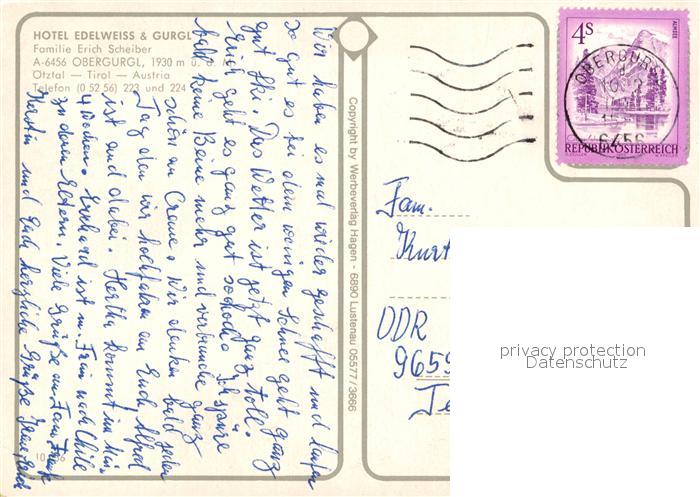 HOTEL EDELWEISS & GURGL
Familie Erich Scheiber
A-6456 OBERGURGL, 1930 m ü. d.
Ötztal — Tirol — Austria
Telefon (0 52 56) 223 und 224
Wir haben es mal wieder geschafft und laufen
so gut es bei dem wenigen Schnee geht ganz
gut Ski. Das Wetter ist jetzt ganz toll.
Erich geht es ganz gut Ich spüre
bald keine Beine mehr und verbrauche ganz
schön an Creme. Wir denken bald jeden
Tag den wir hochfahren an Euch Alfred
ist auch dabei. Hertha kommt im Mai
4 Wochen. Eberhard ist m. Frau nach Chile
zu deren Eltern. Viele Grüße an Fam.
Martin und Euch herzliche Grüße
Copyright by Werbeverlag Hagen - 6890 Lustenau 05577/3666
ALMSEE
4S
REPUBLIK ÖSTERREICH
OBERGURGL
6456
Fam.
Kurt
DDR
9659
privacy protection
Datenschutz